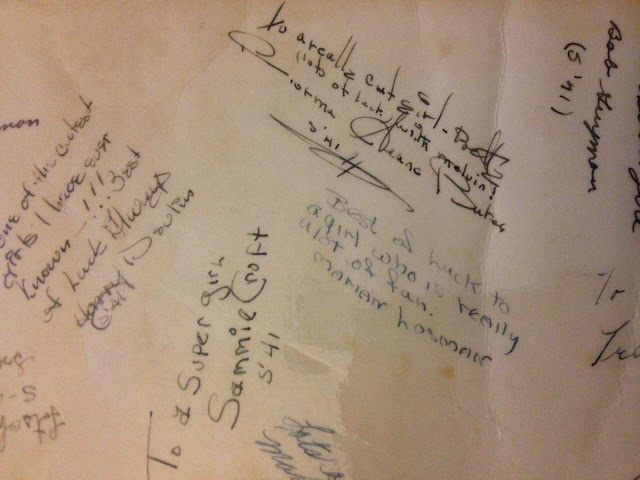 To a really cut girl - Best
(lots of luck, with melvin!)
of
Norma Jeane Butch
S'41
Bob Guyman
(S'41)
To
Tre
man
one of the cutest
girls I have ever
known - !!! Best
of Luck Always
Harry
S'41
Best of Luck to
a girl who is really
alot of fun.
Marian Losman
To a Super girl
Sammie Croft
S'41
Lots
Mar
Lots of